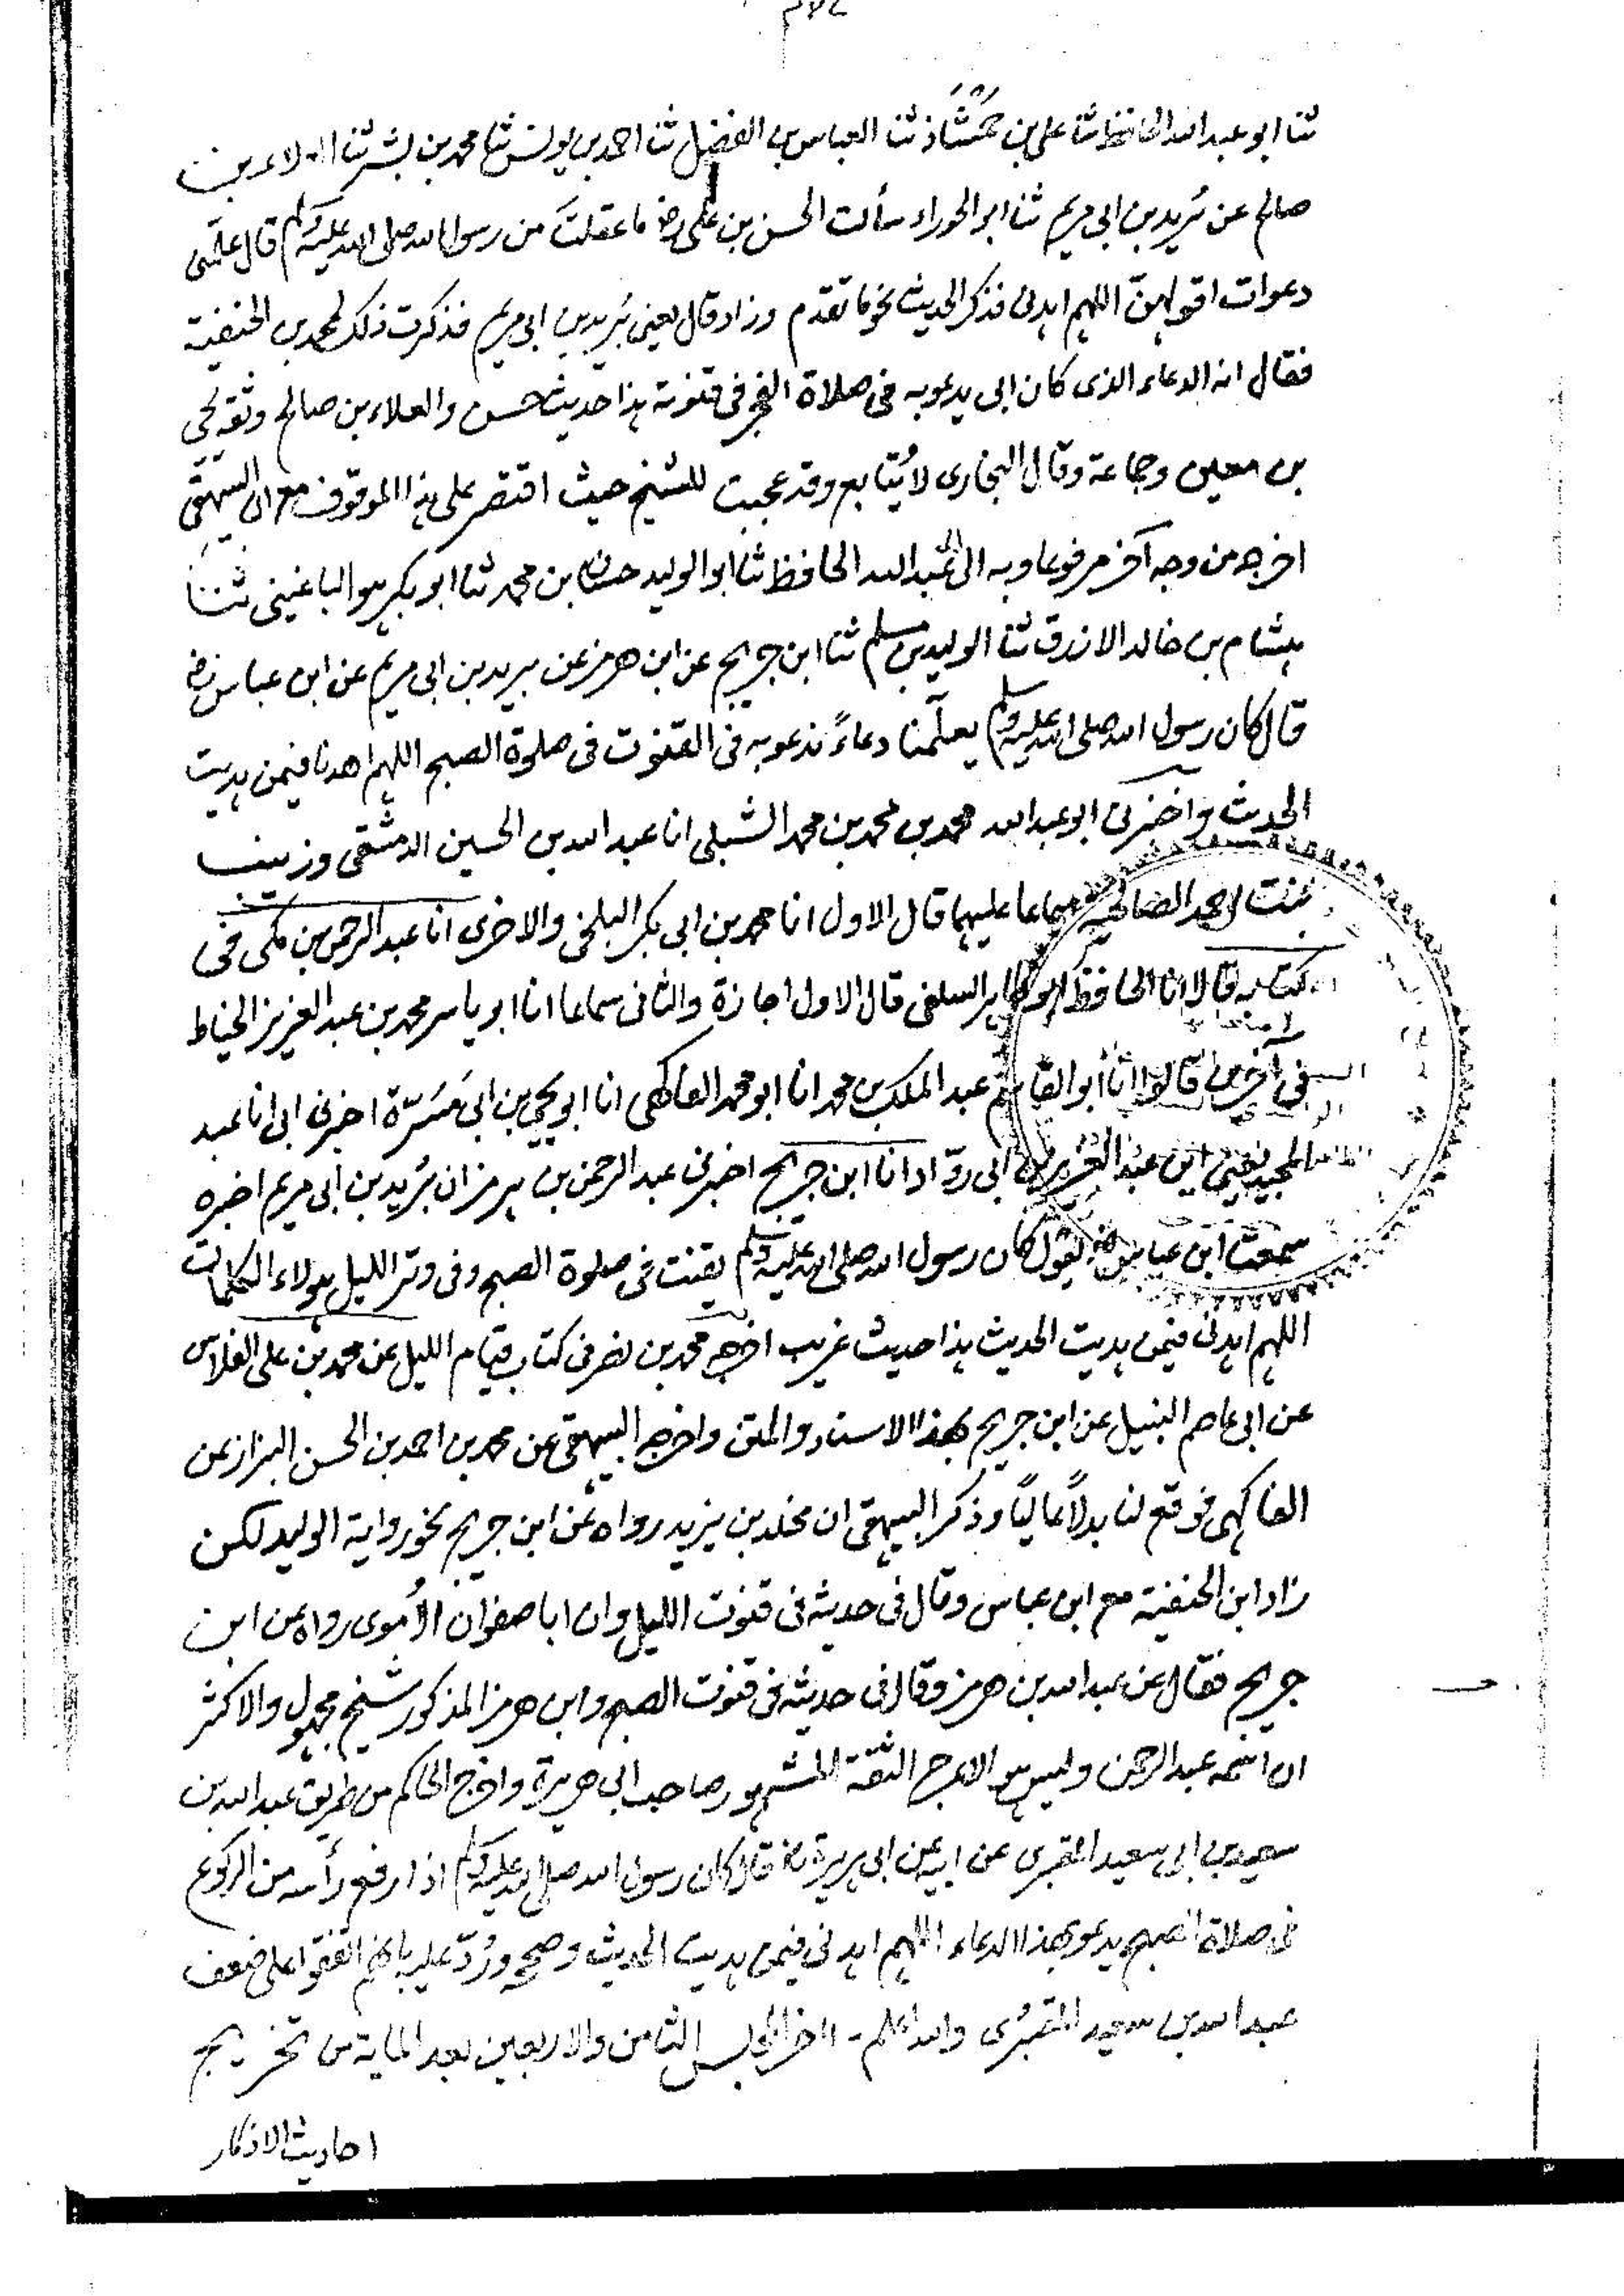 ثنا ابو عبد الله الحافظ ثنا علي بن حمشاذ ثنا العباس بن الفضل ثنا احمد بن يونس ثنا محمد بن بشر ثنا العلاء بن
صالح عن بُريد بن ابى مريم ثنا ابو الحوراء سألت الحسن بن على رضـ ما عقلتَ من رسول الله صلى الله عليه وسلم قال علّمنى
دعوات اقولهنّ اللهم اهدنى فذكر الحديث نحو ما تقدم وزاد قال يعنى بُريد بن ابى مريم فذكرت ذلك لمحمد بن الحنفية
فقال انه الدعاء الذى كان ابى يدعو به فى صلاة الفجر فى قنوته هذا حديث حسن والعلاء بن صالح وثقه يحيى
بن معين وجماعة وقال البخارى لا يُتابع وقد عجبت للشيخ حيث اقتصر على هذا الموقوف مع ان البيهقى
اخرجه من وجه آخر مرفوعا وبه الى ابى عبد الله الحافظ ثنا ابو الوليد حسان بن محمد ثنا ابو بكر هو الباغندى ثنا
هشام بن خالد الازرق ثنا الوليد بن مسلم ثنا ابن جريج عن ابن هرمز عن بريد بن ابى مريم عن ابن عباس رضـ
قال كان رسول الله صلى الله عليه وسلم يعلّمنا دعاءً ندعو به فى القنوت فى صلوة الصبح اللهم اهدنا فيمن هديت
الحديث واخبرنى ابو عبد الله محمد بن محمد بن محمد الشبلى انا عبد الله بن الحسين الدمشقى وزينب
بنت احمد الصالحية سماعا عليهما قال الاول انا محمد بن ابى بكر البلخى والاخرى انا عبد الرحمن بن مكى فى
كتابه قالا انا الحافظ ابو طاهر السلفى قال الاول اجازة والثانى سماعا انا ابو ياسر محمد بن عبد العزيز الخياط
فى آخرين قالوا انا ابو القاسم عبد الملك بن محمد انا ابو محمد الفاكهى انا ابو يحيى بن ابى مَسَرّة اخبرنى ابى انا عبد
المجيد يعنى ابن عبد العزيز بن ابى روّاد انا ابن جريج اخبرنى عبد الرحمن بن هرمز ان بُريد بن ابى مريم اخبره
سمعت ابن عباس رضـ يقول كان رسول الله صلى الله عليه وسلم يقنت فى صلوة الصبح وفى وتر الليل بهؤلاء الكلمات
اللهم اهدنى فيمن هديت الحديث هذا حديث غريب اخرجه محمد بن نصر فى كتاب قيام الليل عن محمد بن على الفلاس
عن ابى عاصم النبيل عن ابن جريج بهذا الاسناد والمتن واخرجه البيهقى عن محمد بن احمد بن الحسن البزاز عن
الفاكهى فوقع لنا بدلاً عاليًا وذكر البيهقى ان مخلد بن يزيد رواه عن ابن جريج نحو رواية الوليد لكن
زاد ابن الحنفية مع ابن عباس وقال فى حديثه فى قنوت الليل وان ابا صفوان الأموى رواه عن ابن
جريج فقال عن عبد الله بن هرمز وقال فى حديثه فى قنوت الصبح وابن هرمز المذكور شيخ مجهول والاكثر
ان اسمه عبد الرحمن وليس هو الاعرج الثقة المشهور صاحب ابى هريرة واخرج الحاكم من طريق عبد الله بن
سعيد بن ابى سعيد المقبرى عن ابيه عن ابى هريرة رضـ قال كان رسول الله صلى الله عليه وسلم اذا رفع رأسه من الركوع
فى صلاة الصبح يدعو بهذا الدعاء اللهم اهدنى فيمن هديت الحديث وصححه ورُدّ عليه بانهم اتفقوا على ضعف
عبد الله بن سعيد المقبُرى والله اعلم - اخر المجلس الثامن والاربعين بعد المايه من تخريج
احاديث الاذكار